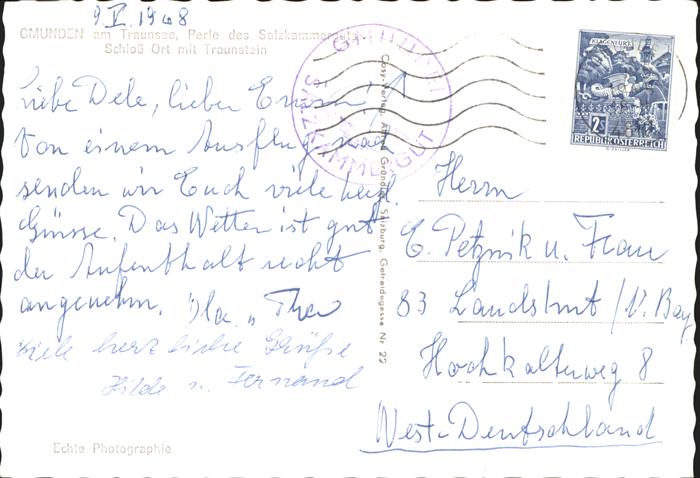 9 V. 1968
GMUNDEN am Traunsee, Perle des Salzkammergutes
Schloß Ort mit Traunstein
Liebe Dele, lieber Erwin!
Von einem Ausflug
senden wir Euch viele herzl.
Grüsse. Das Wetter ist gut
der Aufenthalt recht
angenehm.
Viele herzliche Grüße
Hilde u. Fernand
Echte Photographie
Cosy-Verlag, Alfred Gründler, Salzburg, Getreidegasse Nr. 22
GMUNDEN
SALZKAMMERGUT
KLAGENFURT
2S
REPUBLIK ÖSTERREICH
Herrn
E. Petznik u. Frau
83 Landshut / N. Bay
Hochkalterweg 8
West-Deutschland